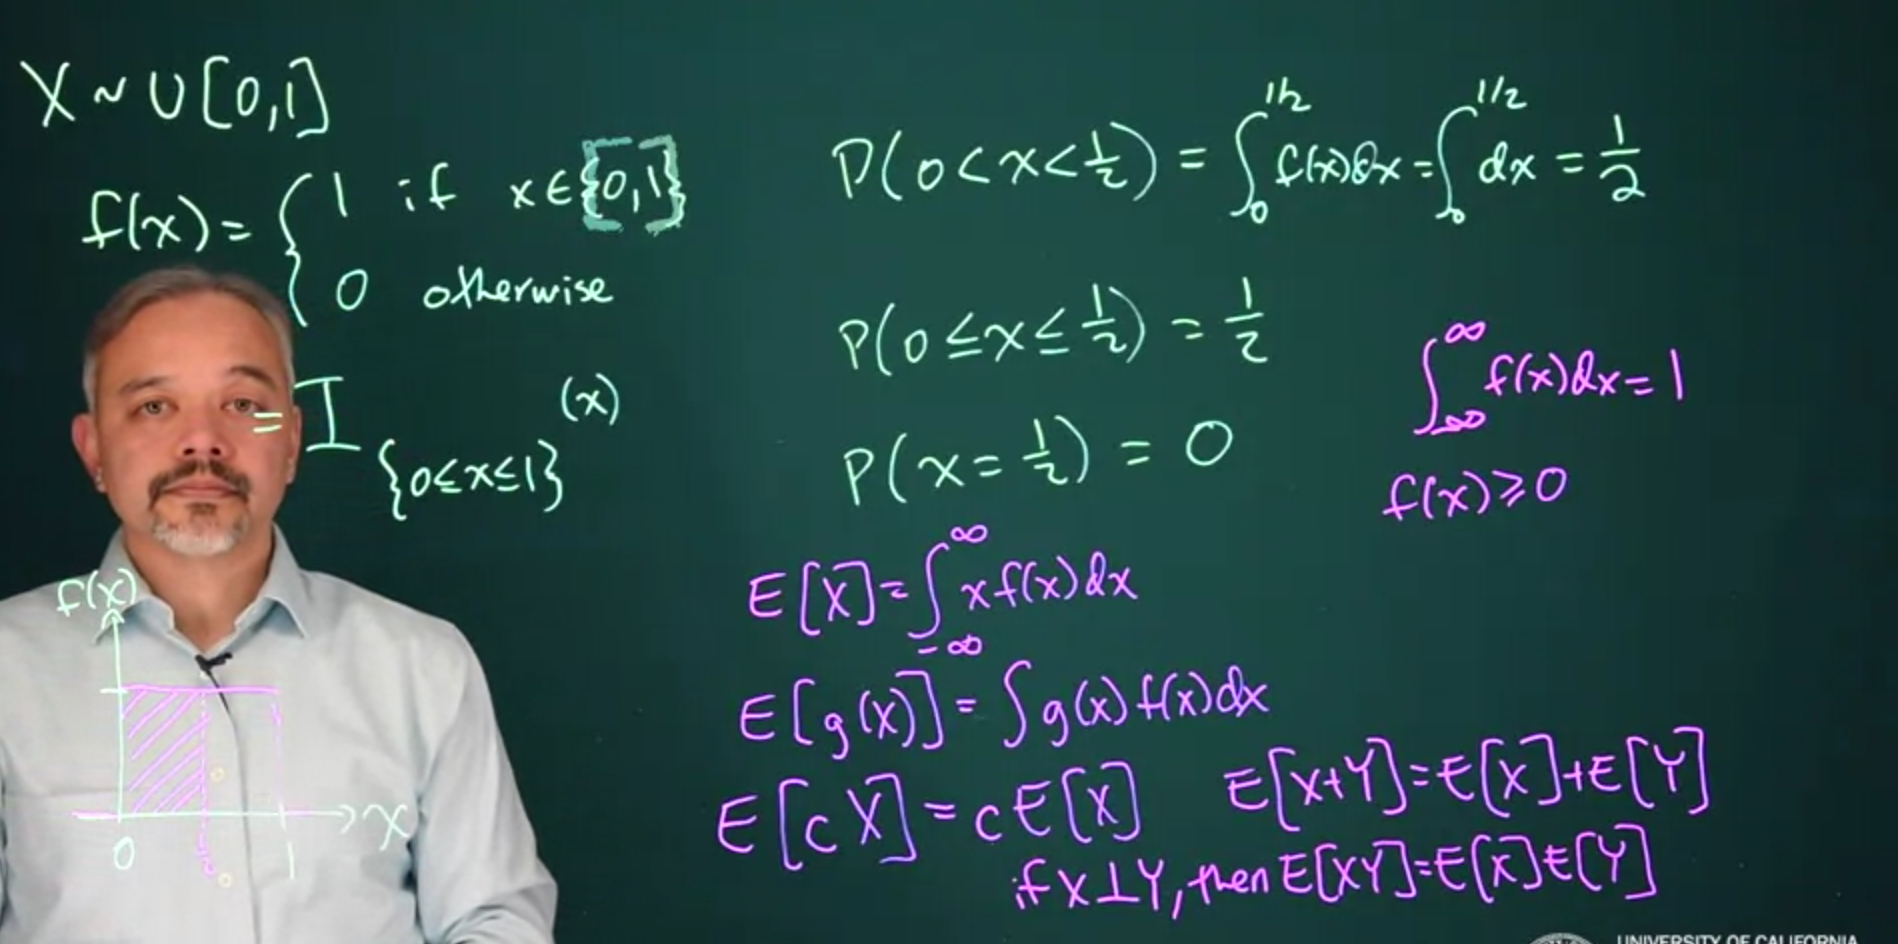 X ~ U[0,1]
f(x) = { 1 if x ∈ {[0,1]}
0 otherwise
= I_{0≤x≤1}(x)
f(x)
0 1/2 1 x
P(0<x<1/2) = ∫_0^{1/2} f(x)dx = ∫_0^{1/2} dx = 1/2
P(0≤x≤1/2) = 1/2
P(x=1/2) = 0
∫_{-∞}^{∞} f(x)dx = 1
f(x) ≥ 0
E[X] = ∫_{-∞}^{∞} x f(x)dx
E[g(X)] = ∫ g(x) f(x)dx
E[cX] = cE[X] E[X+Y] = E[X]+E[Y]
if X⊥Y, then E[XY] = E[X]E[Y]
UNIVERSITY OF CALIFORNIA